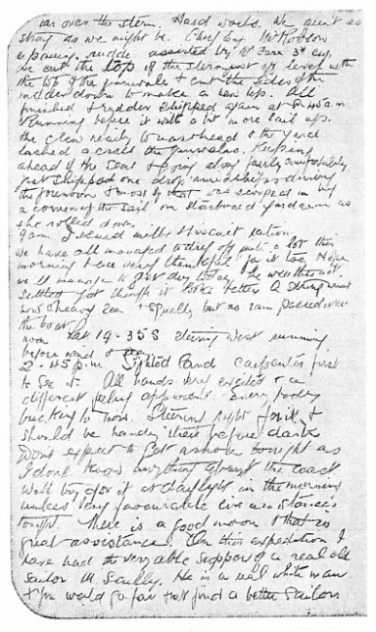 oar over the stern. Hard work. We ain't as
strong as we might be. Chief Eng. McRobson
assisted by
we cut the top of the sternpost off level with
the top of the & cut the sides of the
rudder down to make a new. All
finished & rudder shipped again at 8.
Running before it with a bit more sail up.
the all clear ready to & the yard
lashed across the gunwales. Keeping
ahead of the seas & going along fairly comfortably
Just shipped one drop amidships during
the forenoon & most of that was scooped in by
a corner of the sail on starboard yardarm as
she rolled down.
9am Issued milk & biscuit ration.
We have all managed to dry off quite a lot this
morning & are very thankful for it too. Hope
we'll manage to get dry today. The weather not
settled yet though it looks better. A strong wind
and heavy sea & squally but no rain passed over
the boat.
noon Lat 19-35S steering West running
before wind & sea
2.45 p.m. Sighted land carpenter first
to see it. All hands very excited & a
different feeling apparent. Every body
bucking to now. Steering right for it &
should be handy there before dark
Don't expect to get ashore tonight as
I don't know anything about the coast
Will try for it at daylight in the morning
unless very favourable circumstances
tonight. There is a good moon & that is
great assistance. On this expedition I
have had the very able support of a real old
sailor M Scully. He is a real white man
& you would go far & not find a better sailor